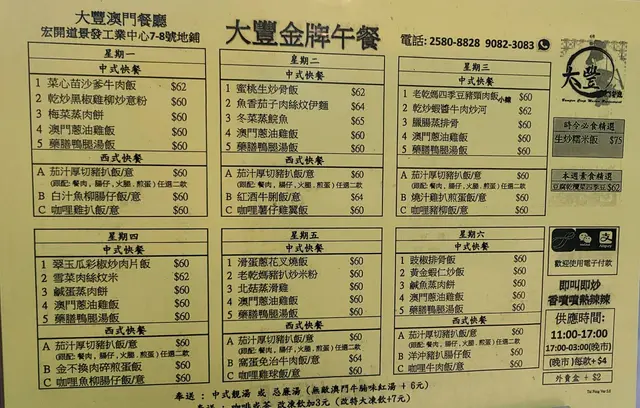 大豐澳門餐廳
宏開道景發工業中心7-8號地鋪
大豐金牌午餐
電話: 2580-8828 9082-3083
星期一
中式快餐
1 菜心苗沙爹牛肉飯 $62
2 乾炒黑椒雞柳炒意粉 $60
3 梅菜蒸肉餅 $60
4 澳門蔥油雞飯 $60
5 藥膳鴨腿湯飯 $60
西式快餐
A 茄汁厚切豬扒飯/意 $60
(跟配: 餐肉, 腸仔, 火腿, 煎蛋) 任選二款
B 白汁魚柳腸仔飯/意 $60
C 咖哩雞扒飯/意 $60
星期二
中式快餐
1 蜜桃生炒骨飯 $62
2 魚香茄子肉絲炆伊麵 $64
3 冬菜蒸鯇魚 $65
4 澳門蔥油雞飯 $60
5 藥膳鴨腿湯飯 $60
西式快餐
A 茄汁厚切豬扒飯/意 $60
(跟配: 餐肉, 腸仔, 火腿, 煎蛋) 任選二款
B 紅酒牛脷飯/意 $64
C 咖哩薯仔雞翼飯 $60
星期三
中式快餐
1 老乾媽四季豆豬頸肉飯 小辣 $60
2 乾炒蝦醬牛肉炒河 $62
3 臘腸蒸排骨 $60
4 澳門蔥油雞飯 $60
5 藥膳鴨腿湯飯 $60
西式快餐
A 茄汁厚切豬扒飯/意 $60
(跟配: 餐肉, 腸仔, 火腿, 煎蛋) 任選二款
B 燒汁雞扒煎蛋飯/意 $60
C 咖哩豬柳飯/意 $60
大豐
時令必食精選
生炒糯米飯 $75
本週素食精選
$62
星期四
中式快餐
1 翠玉瓜彩椒炒肉片飯 $60
2 雪菜肉絲炆米 $62
3 鹹蛋蒸肉餅 $60
4 澳門蔥油雞飯 $60
5 藥膳鴨腿湯飯 $60
西式快餐
A 茄汁厚切豬扒飯/意 $60
(跟配: 餐肉, 腸仔, 火腿, 煎蛋) 任選二款
B 金不換肉碎煎蛋飯 $60
C 咖哩魚柳腸仔飯/意 $60
星期五
中式快餐
1 滑蛋蔥花叉燒飯 $60
2 老乾媽豬扒炒米粉 $60
3 北菇蒸滑雞 $60
4 澳門蔥油雞飯 $60
5 藥膳鴨腿湯飯 $60
西式快餐
A 茄汁厚切豬扒飯/意 $60
(跟配: 餐肉, 腸仔, 火腿, 煎蛋) 任選二款
B 窩蛋免治牛肉飯/意 $64
C 咖哩雞球飯/意 $60
星期六
中式快餐
1 豉椒排骨飯 $60
2 黃金蝦仁炒飯 $60
3 鹹魚蒸肉餅 $60
4 澳門蔥油雞飯 $60
5 藥膳鴨腿湯飯 $60
西式快餐
A 茄汁厚切豬扒飯/意 $60
(跟配: 餐肉, 腸仔, 火腿, 煎蛋) 任選二款
B 洋沖豬扒腸仔飯/意 $60
C 咖哩牛肉飯/意 $60
Alipay
歡迎使用電子付款
即叫即炒
香噴噴熱辣辣
供應時間:
11:00-17:00
17:00-03:00(晚市)
(晚市) 每款+$4
外賣盒 + $2
奉送 : 中式靚湯 或 忌廉湯 (無敵澳門牛腩味紅湯 + 6元)
奉送 : 咖啡或茶 改凍飲加3元 (改特大凍飲+7元)